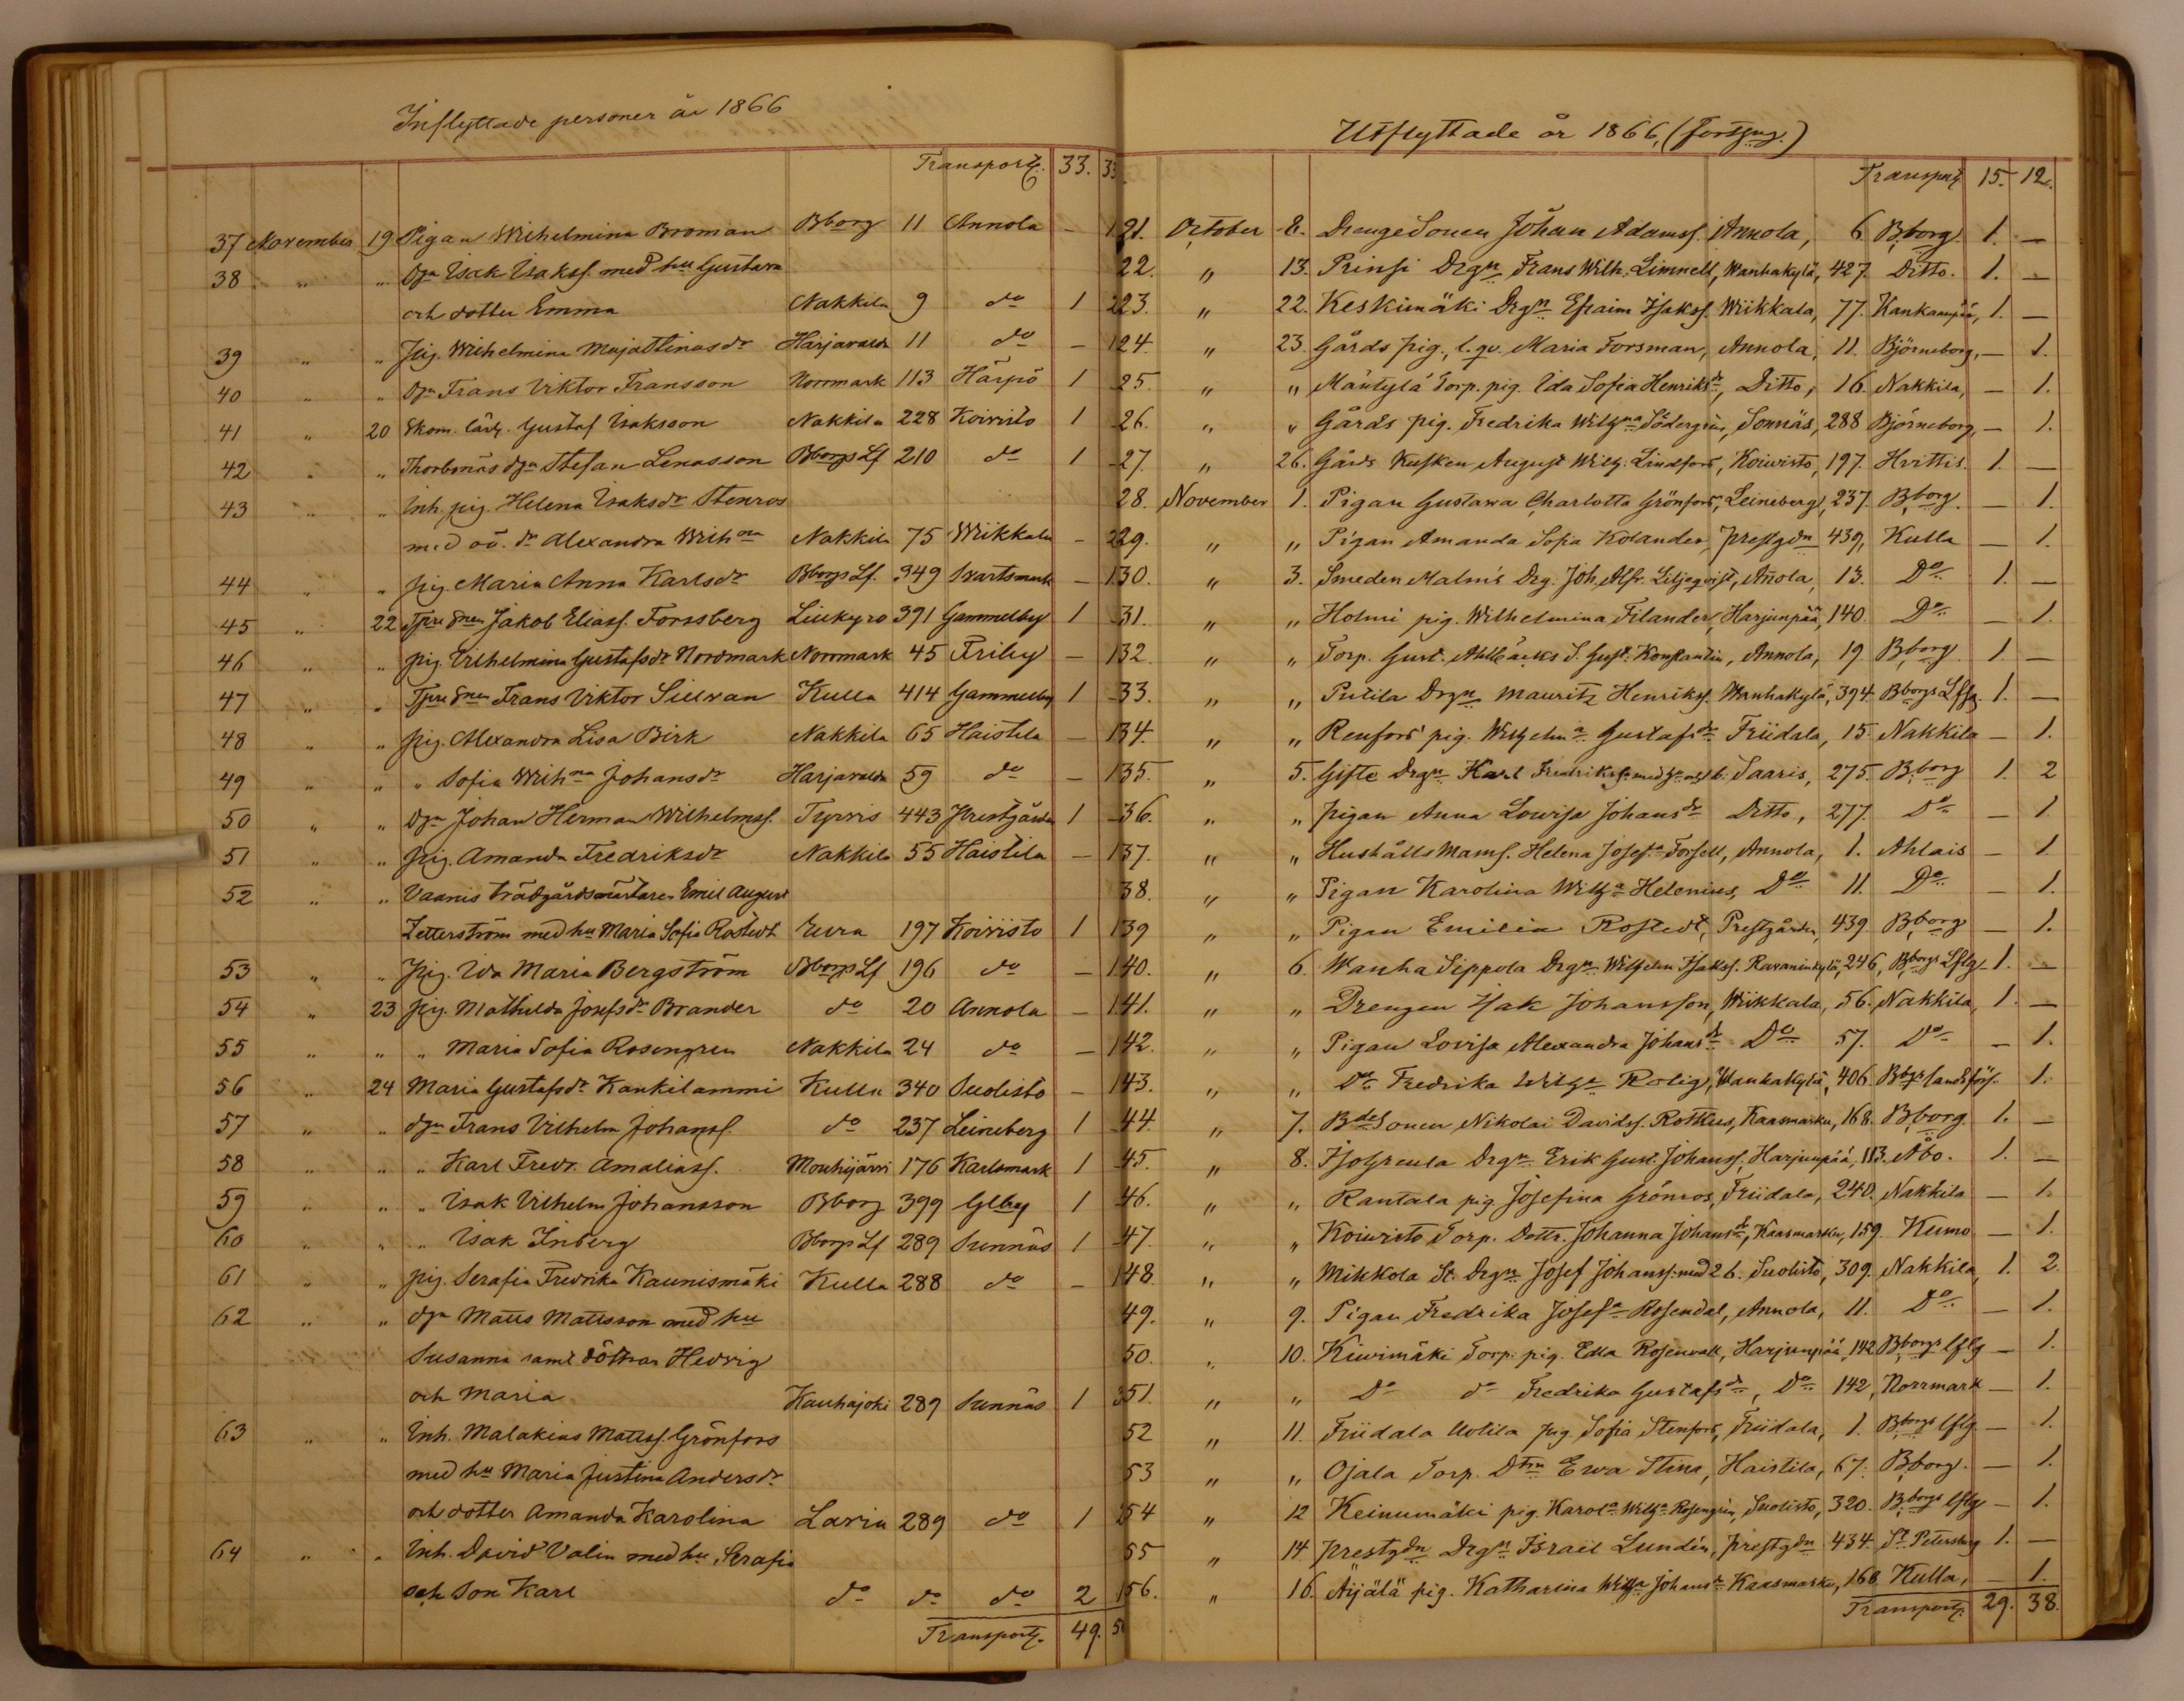 Inflyttade personer år 1866
Transport. 33. 3
37 November 19 Pigan Wilhelmina Broman Bborg 11 Annola — 1
38 " " Dgn Isak Isakss. med hu Gustava
och dotter Emma Nakkila 9 do 1 2
39 " " Pig. Wilhelmina Majattinasdr Harjavalda 11 do — 1
40 " " Dgn Frans Viktor Fransson Norrmark 113 Härpö 1
41 " 20 Skom. lärl. Gustaf Isaksson Nakkila 228 Koivisto 1
42 " " Thorbonäs dgn Stefan Lenasson Bborgs Lf 210 do 1
43 " " Inh. pig. Helena Isaksdr Stenros
med oä. dr Alexandra Wilhna Nakkila 75 Wiikkala —
44 " " pig. Maria Anna Karlsdr Bborgs Lf. 349 Svartsmark —
45 " 22 Jakob Eliass. Forssberg Liukyro 391 Gammelby 1
46 " " pig. Vilhelmina Gustafsdr Nordmark Norrmark 45 Friby —
47 " " Frans Viktor Sillvan Kulla 414 Gammelby 1
48 " " pig. Alexandra Lisa Birk Nakkila 65 Haistila —
49 " " " Sofia Wilhna Johansdr Harjavalda 59 do —
50 " " Dgn Johan Herman Wilhelmss. Tyrvis 443 Prestgården 1
51 " " pig. Amanda Fredriksdr Nakkila 55 Haistila —
52 " " Vaanis trädgårdsmästaren Emil August
Zetterström med hu Maria Sofia Rostedt Eura 197 Koivisto 1
53 " " Pig. Ida Maria Bergström Bborgs Lf 196 do —
54 " 23 Pig. Mathilda Josefsdr Brander do 20 Annola —
55 " " " Maria Sofia Rosengren Nakkila 24 do —
56 " 24 Maria Gustafsdr Kankilammi Kulla 340 Suolisto —
57 " " dgn Frans Vilhelm Johanss. do 237 Leineberg 1
58 " " " Karl Fredr. Amaliass. Mouhijärvi 176 Karlsmark 1
59 " " " Isak Vilhelm Johansson Bborg 399 Glby 1
60 " " " Isak Inberg Bborgs Lf 289 Sunnäs 1
61 " " pig. Serafia Fredrika Kaunismäki Kulla 288 do —
62 " " dgn Matts Mattsson med hu
Susanna samt döttrar Hedvig
och Maria Kauhajoki 289 Sunnäs 1
63 " " Inh. Malakias Mattss. Grönfors
med hu Maria Justina Andersdr
och dotter Amanda Karolina Lavia 289 do 1
64 " " Inh. David Valin med hu Serafia
och Son Karl do do do 2
Transport. 49. 5
Utflyttade år 1866, (fortsng.)
Transport 15. 12.
121. October 8. DrengeSonen Johan Adamss. Annola, 6 Bborg. 1. —
22. " 13. Prinsi Drgn Frans Wilh. Limnell, Wanhakylä, 427. Ditto. 1. —
23. " 22. Keskimäki Drgn Efraim Isakss. Wiikkala, 77. Kankaanpää, 1. —
24. " 23. Gårds pig., l. qv. Maria Forsman, Annola, 11. Björneborg, — 1.
25. " " Mäntylä Torp. pig. Ida Sofia Henriksdr, Ditto, 16. Nakkila, — 1.
26. " " Gårds pig. Fredrika Wilhna Södergrén, Sonnäs, 288 Björneborg, — 1.
27. " 26. Gårds Kusken August Wilh. Lindfors, Koivisto, 197. Hvittis. 1. —
28. November 1. Pigan Gustawa Charlotta Grönfors, Leineberg, 237. Bborg. — 1.
29. " " Pigan Amanda Sofia Kolander, prestgdn 439, Kulla — 1.
130. " 3. Smeden Malms Drg. Joh. Alfr. Liljeqvist, Annola, 13. Do 1. —
31. " " Holmi pig. Wilhelmina Filander, Harjunpää, 140. Do — 1.
132. " " Torp. Gust. Ahlbäcks S. Gust. Konstantin, Annola, 19 Bborg 1. —
33. " " Putila Drgn Mauritz Henrikss. Wanhakylä, 394. Bborgs Lfsg. 1. —
134. " " Renfors pig. Wilhelmna Gustafsdr Friidala, 15. Nakkila — 1.
135. " 5. Gifte Drgn Karl Fredrikss. med hu och 1 b. Saaris, 275. Bborg 1. 2
36. " " pigan Anna Lowisa Johansdr Ditto, 277. Do — 1
137. " " Hushålls Mams. Helena Josefa Forsell, Annola, 1. Ahlais — 1
38. " " Pigan Karolina Wilha Helenius, Do 11. Do — 1.
139 " " Pigan Emilia Rostedt, Prestgården, 439. Bborg — 1.
140. " 6. Wanha Sippola Drgn Wilhelm Isakss. Ravaninkylä, 246, Bborgs Lflg 1. —
141. " " Drengen Isak Johansson, Wiikkala, 56. Nakkila, 1. —
142. " " Pigan Lovisa Alexandra Johansdr Do 57. Do — 1.
143. " " Do Fredrika Wilha Rolig, Wanhakylä, 406. Bbgs landsförs. 1.
44. " 7. BdeSonen Nikolai Davidss. Rottkus, Kaasmarku, 168. Bborg. 1. —
45. " 8. Drgn Erik Gust. Johanss. Harjunpää, 113. Åbo. 1. —
46. " " Rantala pig. Josefina Grönros, Friidala, 240. Nakkila — 1.
47. " " Koivisto Torp. Dottr. Johanna Johansdr, Kaasmarku, 159. Kumo — 1.
148. " " Mikkola St. Drgn Josef Johanss. med 2 b. Suolisto, 309. Nakkila, 1. 2.
49. " 9. Pigan Fredrika Josefa Rosendal, Annola, 11. Do — 1.
50. " 10. Kiwimäki Torp. pig. Edla Rosenvall, Harjunpää, 142 Bborgs lflg — 1.
151. " " Do do Fredrika Gustafsdr, Do 142, Norrmark — 1.
52 " 11. Friidala Uotila pig. Sofia Stenfors, Friidala, 1. Bborgs lflg. — 1.
53 " " Ojala Torp. Dtrn Ewa Stina, Haistila, 67. Bborg. — 1.
54 " 12 Keinumäki pig. Karola Wilha Rosengrén, Suolisto, 320. Bborgs lflg — 1.
55 " 14 prestgdn Drgn Israel Lundén, prestgdn 434. St Petersburg 1. —
156. " 16. Äijälä pig. Katharina Wilha Johansdr Kaasmarku, 168. Kulla, — 1.
Transport. 29. 38.